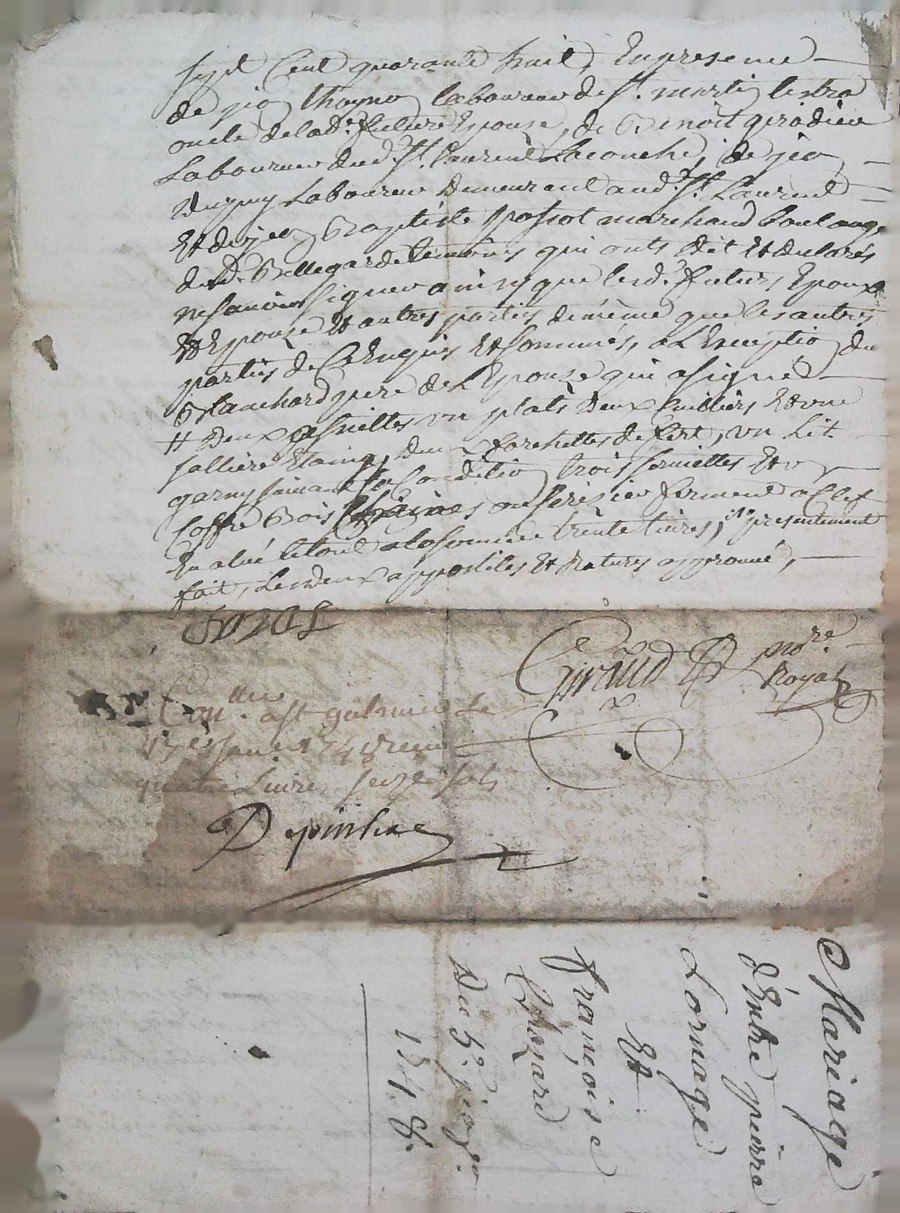 sept Cent quarante huit, En presence
de jean thoyno laboureur de St. martin lestra
oncle de lad. future Epouse, de Benoit girodier
Laboureur dud. St. Laurent Laconche, de jean
Dupuy Laboureur demeurant aud. St. Laurent
Et de jean Baptiste passot marchand boulanger
de Bellegarde temoins qui ont dit Et declarés
ne savoir signer ainsy que lesd. futurs Epoux
Et Epouze Et autres parties de même que les autres
parties de Ce Enquis Et sommés, a L'Exception du
Blanchard pere de L'Epouze qui a signé
# deux assiettes un plats deux Cuilliers Et une
salliere Etaing, deux forchettes de fert, un Lit
garny suivant sa Condition trois serviettes Et un
Coffre Bois ou Serisier fermant a Clef
Evalué le tout a la somme trente livres, presentement
fait, Les deux appostiles Et Ratures approuvé,
Giraud Nore. Royal
Conllé. a St galmier Le
17e janvier 1748 reçu
quatre Livres seize sols
Depinhac
Mariage
d'Entre pierre
Lornage
Et
françoise
du 5e. jer
1748.